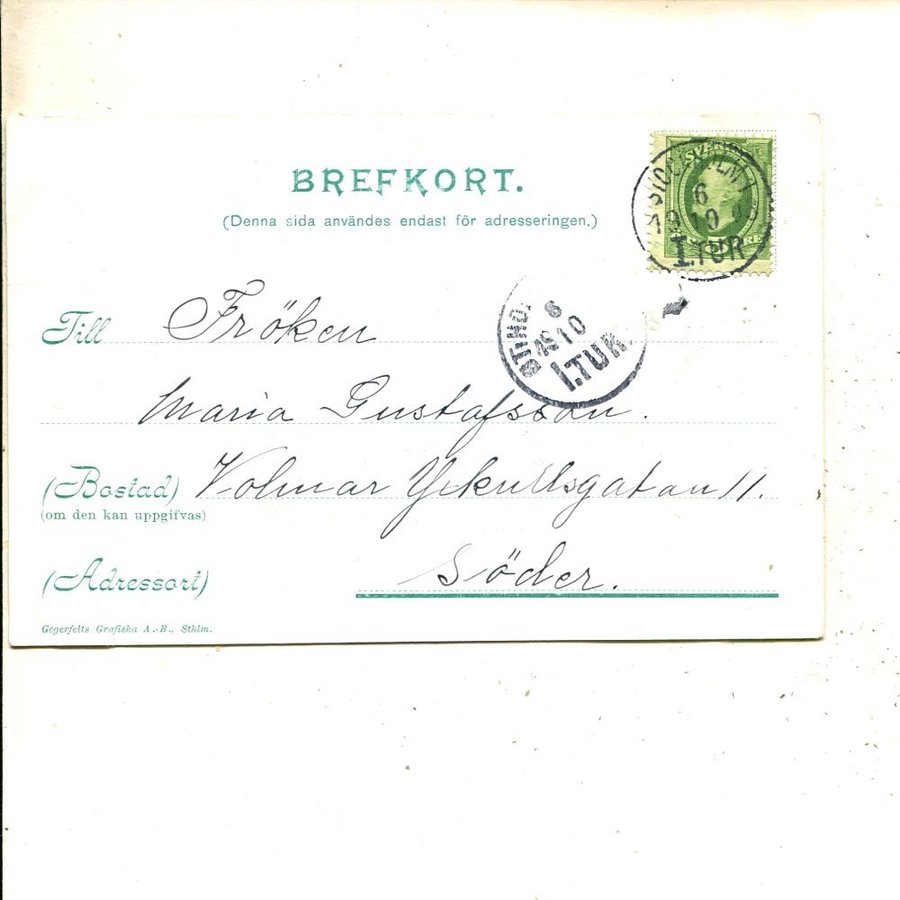 BREFKORT.
(Denna sida användes endast för adresseringen.)
SVERIGE
6
19 10
1.TUR
STHO.
6
19 10
1.TUR.
Till Fröken
Maria Gustafsson.
(Bostad) Volmar Yxkullsgatan 11.
(om den kan uppgifvas)
(Adressort) Söder.
Gegerfelts Grafiska A.-B., Sthlm.